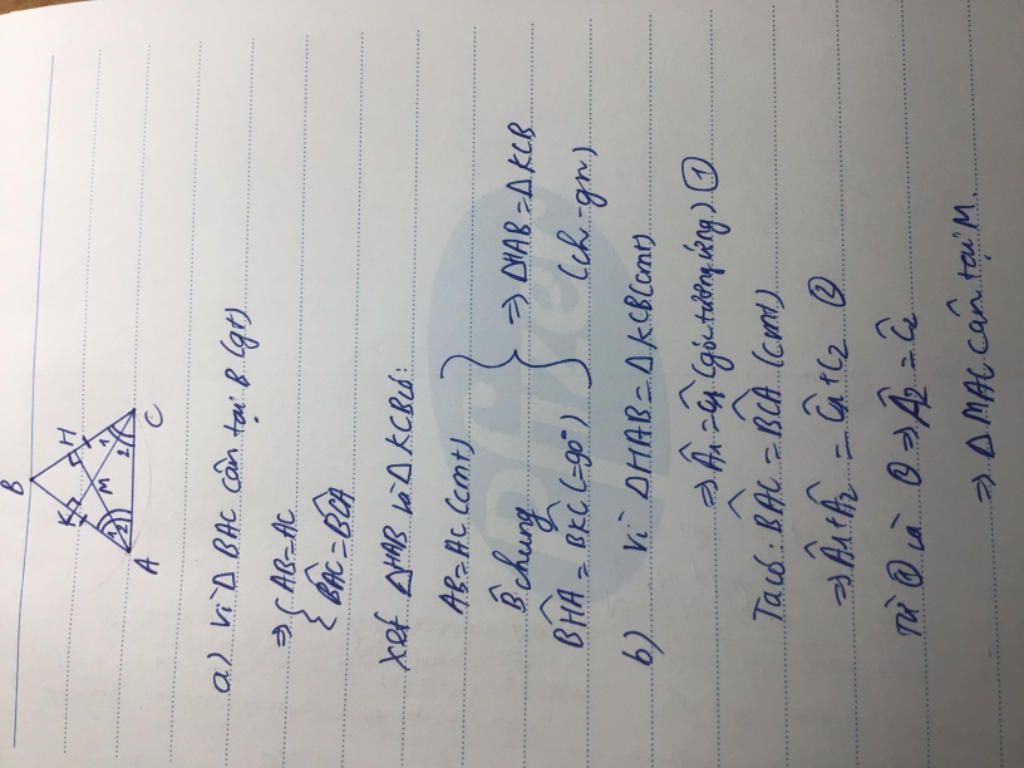 B
K
H
M
1
2
1
2
A
C
a) Vì Δ BAC cân tại B (gt)
⇒ { AB = AC
B̂AC = B̂CA
Xét ΔHAB và ΔKCB có:
AB = AC (cmt)
B̂ chung
B̂HA = B̂KC (=90°)
} ⇒ ΔHAB = ΔKCB
(ch - gn)
b) Vì ΔHAB = ΔKCB (cmt)
⇒ Â1 = Ĉ1 (góc tương ứng) ①
Ta có: B̂AC = B̂CA (cmt)
⇒ Â1 + Â2 = Ĉ1 + Ĉ2 ②
Từ ① và ② ⇒ Â2 = Ĉ2
⇒ Δ MAC cân tại M.
Pfizer